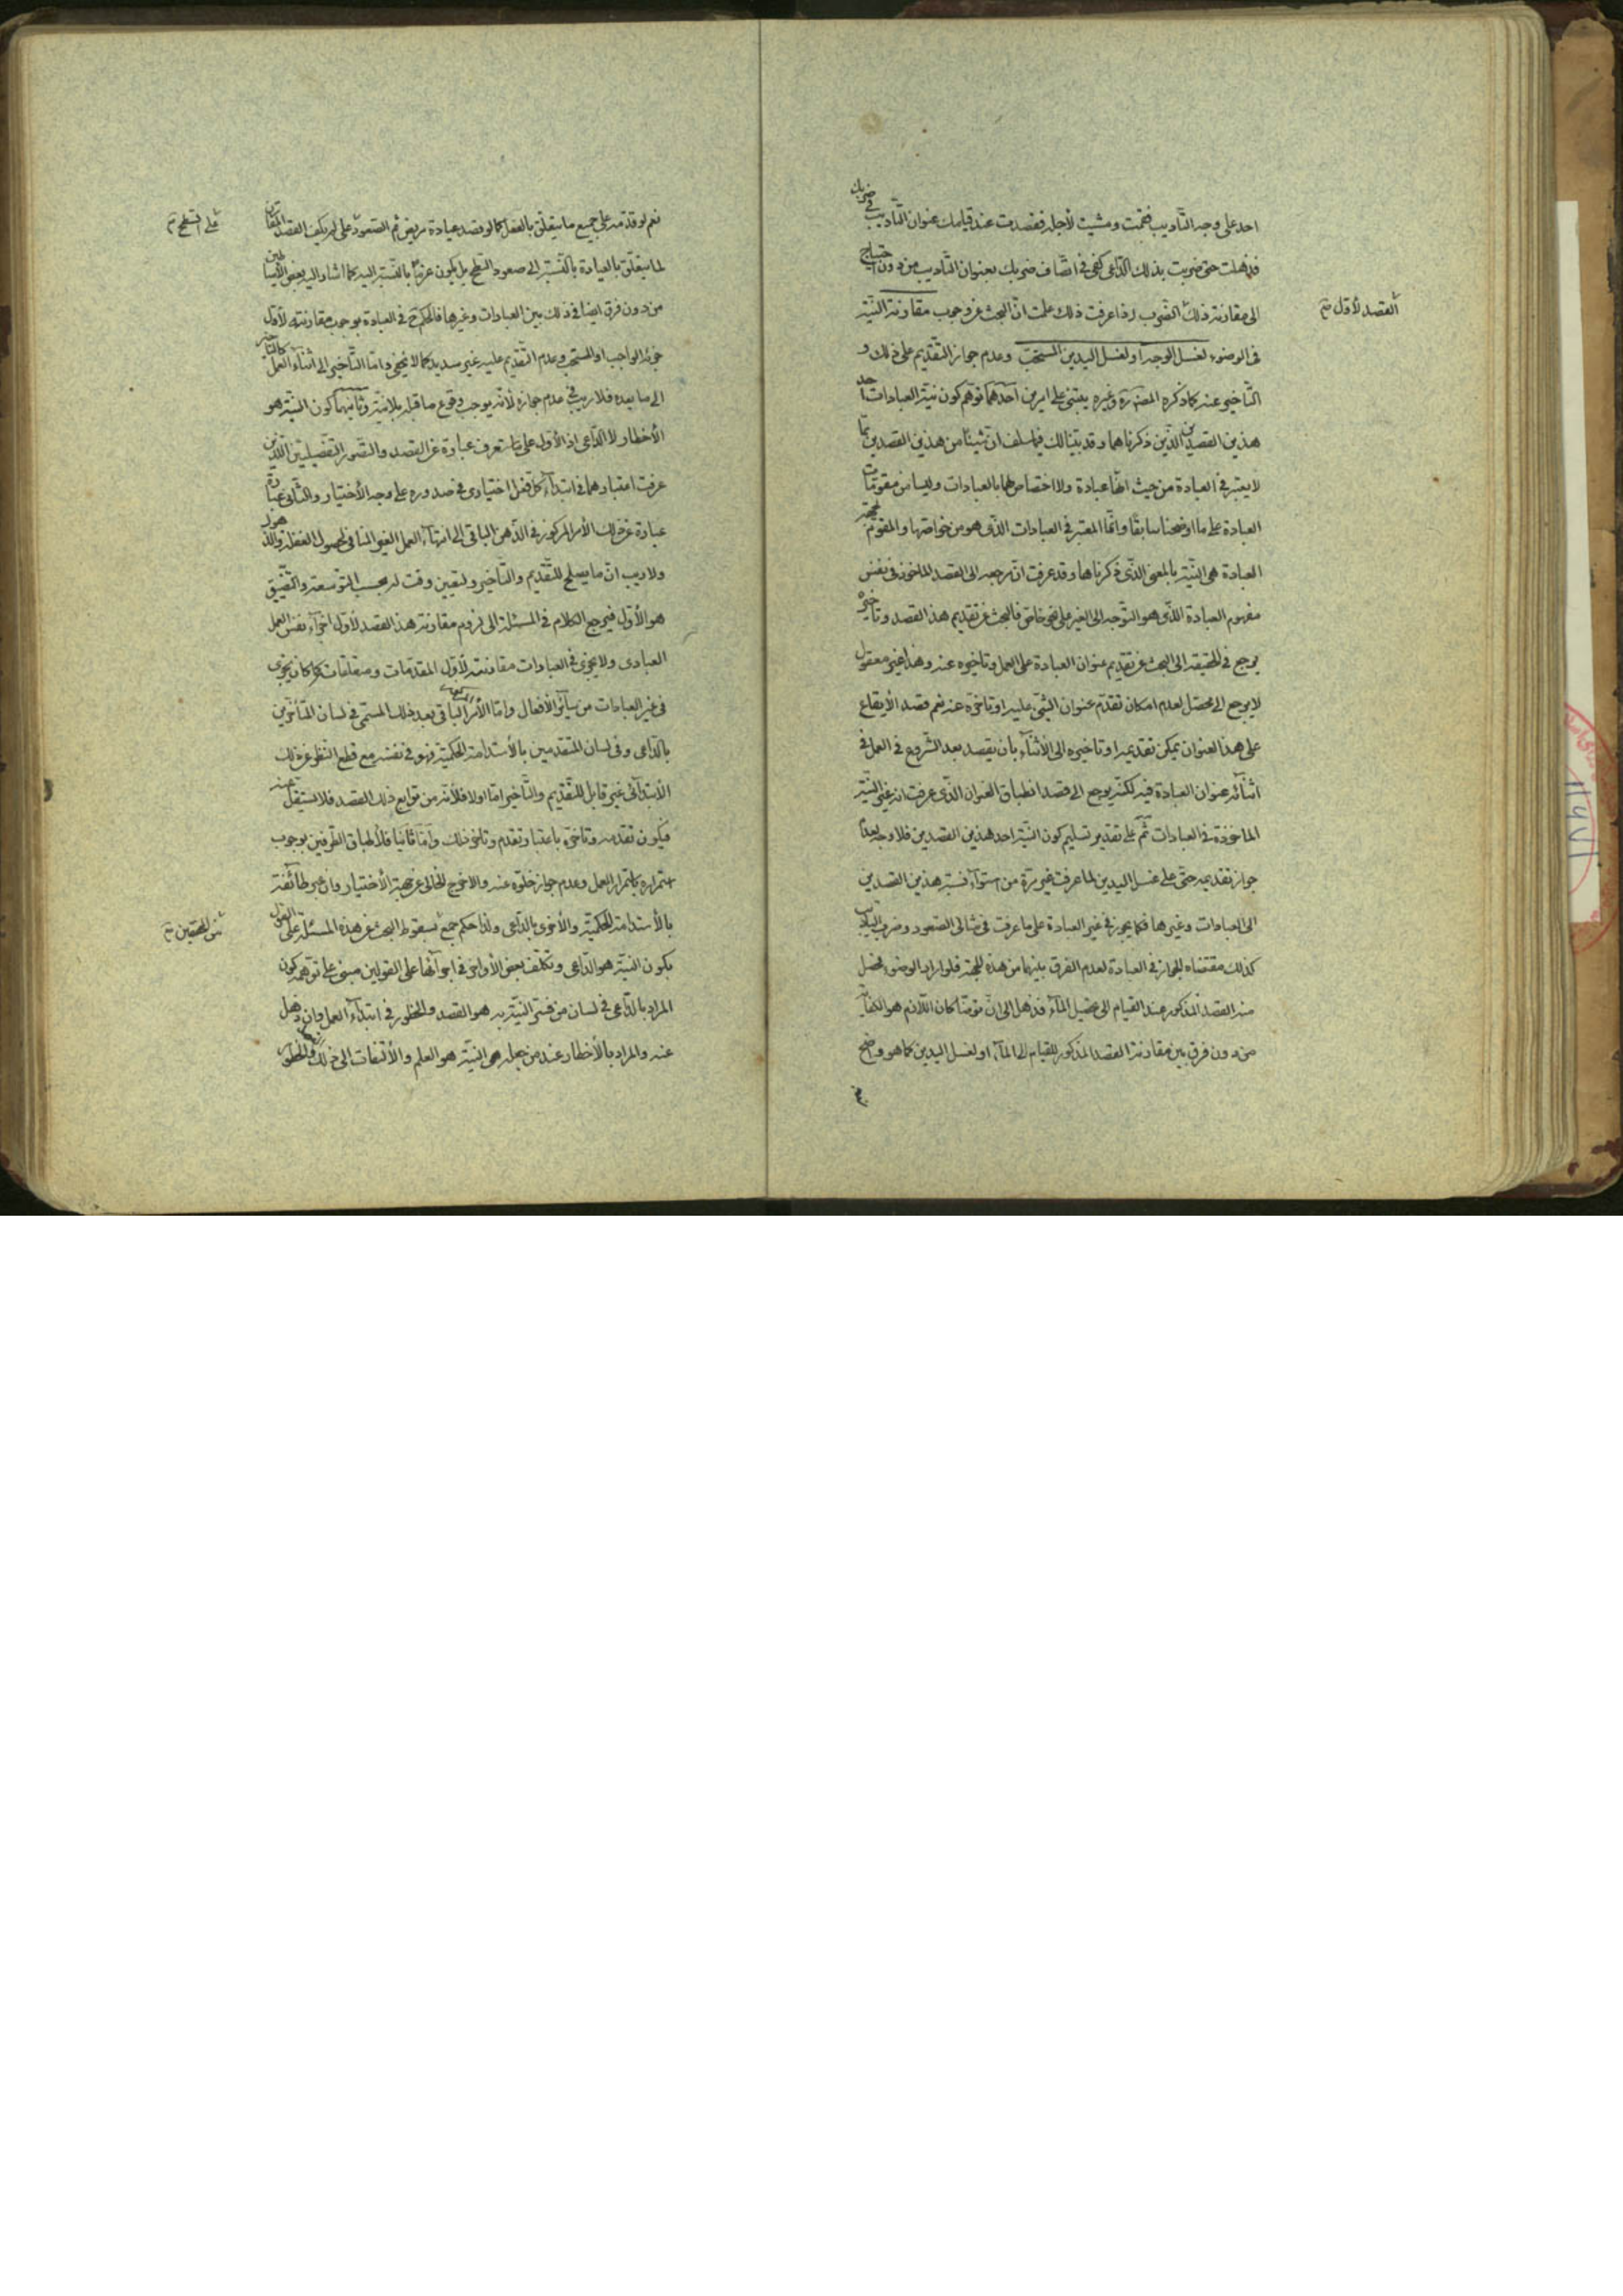 احد على وجه التأديب فقمت ومشيت لأجله فقصدت عند قيامك عنوان التأديب في ضربك
فذهلت حتى ضربت بذلك الداعى كفى في اتصاف ضربك بعنوان التأديب من دون احتياج
الى مقارنة ذلك الضرب اذا عرفت ذلك علمت ان البحث عن وجوب مقارنة النية
القصد الأول
فى الوضوء لغسل الوجه او لغسل اليدين المستحب وعدم جواز التقديم على ذلك و
التأخير عنه كما ذكره المصنف ره وغيره يبتنى على امرين احدهما توهم كون نية العبادات احد
هذين القصدين الذين ذكرناهما وقد بينا لك فيما سلف ان شيئا من هذين القصدين مما
لا يعتبر في العبادة من حيث انها عبادة ولا اختصاص لهما بالعبادات وليسا من مقومات
العبادة على ما اوضحنا سابقا وانما المعتبر في العبادات الذى هو من خواصها والمقوم لجهة
العبادة هى النية بالمعنى الذى ذكرناها وقد عرفت ان مرجعه الى القصد المأخوذ في نفس
مفهوم العبادة الذى هو التوجه الى الغير على نحو خاص فالبحث عن تقديم هذا القصد وتأخيره
يرجع في الحقيقة الى البحث عن تقديم عنوان العبادة على العمل وتأخيره عنه وهذا غير معقول
لا يرجع الى محصل لعدم امكان تقدم عنوان الشئ عليه او تأخره عنه نعم قصد الأيقاع
على هذا العنوان يمكن تقديمه او تأخيره الى الأثناء بأن يقصد بعد الشروع في العمل في
اثنائه عنوان العبادة فيه لكنه يرجع الى قصد انطباق العنوان الذى عرفت انه غير النية
المأخوذة في العبادات ثم على تقدير تسليم كون النية احد هذين القصدين فلا وجه لعدم
جواز تقديمه حتى على غسل اليدين لما عرفت غير مرة من استواء نسبة هذين القصدين
الى العبادات وغيرها فكما يجوز في غير العبادة على ما عرفت في مثالى الصعود وضرب التأديب
كذلك مقتضاه الجواز في العبادة لعدم الفرق بينهما من هذه الجهة فلو اراد الوضوء فحصل
منه القصد المذكور عند القيام الى تحصيل الماء فذهل الى ان توضأ كان اللازم هو الكفاية
من دون فرق بين مقارنة القصد المذكور للقيام الى الماء او لغسل اليدين كما هو واضح
نعم لو قدمه على جميع ما يتعلق بالفعل كما لو قصد عيادة مريض ثم الصعود على لم يكف القصد المقارن
على السطح
لما يتعلق بالعيادة بالنسبة الى صعود السطح بل يكون عزما بالنسبة اليه كما اشار اليه بعض الأساطين
من دون فرق ايضا في ذلك بين العبادات وغيرها فالحكم في العبادة بوجوب مقارنته لأول
جزئه الواجب او المستحب وعدم التقديم عليه غير سديد كما لا يخفى واما التأخير الى اثناء العمل كالتأخير
الى ما بعده فلا ريب في عدم جوازه لأنه يوجب وقوع ما قبله بلا نية وثانيهما كون النية هو
الأخطار لا الداعى اذ الأول على ما ستعرف عبارة عن القصد والتصور التفصيليين اللذين
عرفت اعتبارهما في ابتداء كل فعل اختيارى في صدوره على وجه الأختيار والثانى عبارة
عبارة عن ذلك الأمر المركوز في الذهن الباقى الى انتهاء العمل الغير المنافى لحصول الغفلة والذهول
ولا ريب ان ما يصلح للتقديم والتأخير وتعيين وقت له بحسب التوسعة والتضييق
هو الأول فيرجع الكلام في المسئلة الى لزوم مقارنة هذا القصد لأول اجزاء نفس العمل
العبادى ولا يجزى في العبادات مقارنته لأول المقدمات ومتعلقات كما كان يجزى
في غير العبادات من سائر الأفعال واما الأمر الباقى بعد ذلك المسمى في لسان المتأخرين
بالداعى وفى لسان المتقدمين بالأستدامة الحكمية فهو في نفسه مع قطع النظر عن ذلك
الأبتدائى غير قابل للتقديم والتأخير اما اولا فلأنه من توابع ذلك القصد فلا يستقل عنه
فيكون تقدمه وتأخره باعتبار تقدم وتأخر ذلك واما ثانيا فلأطباق الطرفين بوجوب
استمراره باستمرار العمل وعدم جواز خلوه عنه والا خرج الخالى عن جهة الأختيار وان عبر طائفة
بالأستدامة الحكمية والأخرى بالداعى ولذا حكم جمع بسقوط البحث عن هذه المسئلة على القول
من المحققين
بكون النية هو الداعى وتكلف بعض الأواخر في اجرائها على القولين مبنى على توهمه كون
المراد بالداعى في لسان من فسر النية به هو القصد والخطور في ابتداء العمل وان ذهل
عنه والمراد بالأخطار عند من جعله هى النية هو العلم والألتفات الى ذلك والخطور